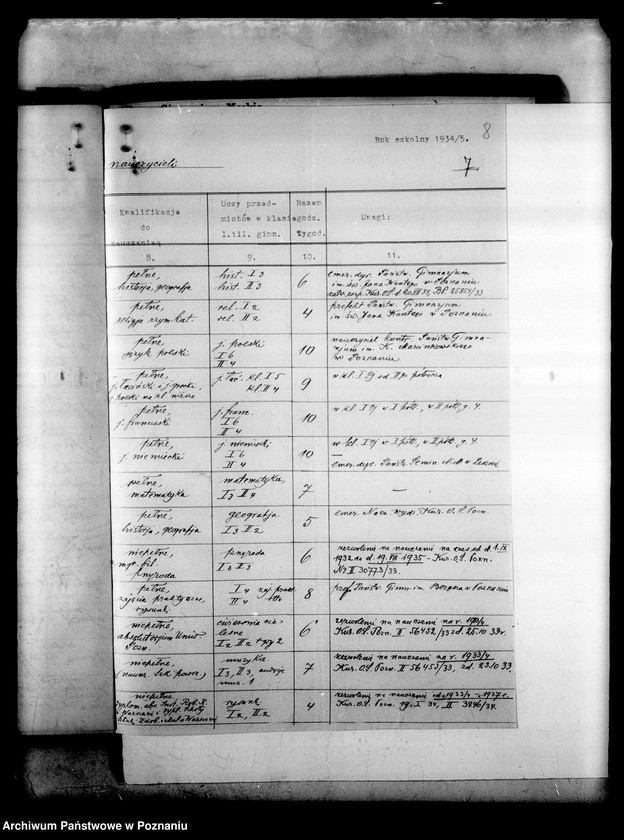 Rok szkolny 1934/5. 8
nauczycieli
7
Kwalifikacje
do
nauczania
8.
Uczy przed-
miotów w klasie
I.iII. gimn.
9.
Razem
godz.
tygod.
10.
Uwagi:
11.
pełne,
historja, geografja
hist. I 3
hist. II 3
6
emer. dyr. Państw. Gimnazjum
im. św. Jana Kantego w Poznaniu
pełne,
religja rzym. kat.
rel. I 2
rel. II 2
4
prefekt Państw. Gimnazjum
im. św. Jana Kantego w Poznaniu
pełne,
język polski
j. polski
I 6
II 4
10
nauczyciel kontr. Państw. Gimna-
zjum im. K. Marcinkowskiego
w Poznaniu
pełne,
j. łaciński i j. grecki,
j. polski na kl. niższe
j. łac. kl. I 5
kl. II 4
9
pełne,
j. francuski
j. franc.
I 6
II 4
10
pełne,
j. niemiecki
j. niemiecki
I 6
II 4
10
emer. dyr. Państw. Semin. Naucz. w
pełne,
matematyka
matematyka,
I 3 II 4
7
—
pełne,
historja, geografja
geografja
I 3 II 2
5
emer. Nacz. wydz. Kur. O. S. Pozn.
niepełne,
mgr. fil.
przyroda
przyroda
I 3 II 3
6
zezwoleni na nauczanie na czas od d. 1.IX
1932 do d. 19.VII 1935 - Kur. O. S. Pozn.
Nr. II 30773/33.
pełne,
zajęcia praktyczne,
rysunki
I 4 zaj. prakt.
II 4
8
prof. Państw. Gimn. im. Bergera w Poznaniu
niepełne,
absolutorjum Uniw.
Pozn.
ćwiczenia cie-
lesne
I 2 II 2 + gry 2
6
zezwoleni na nauczanie na r. 1933/4
Kur. O. S. Pozn. II 56452/33 z d. 25.10 33 r.
niepełne,
muzyka
I 3, II 3, audycje
muz. 1
7
zezwoleni na nauczanie na r. 1933/4
Kur. O. S. Pozn. II 56455/33, z d. 23.10 33.
niepełne
rysunki
I 2, II 2
4
zezwoleni na nauczanie od r. 1933/4 - 1937 r.
Kur. O. S. Pozn. 19. I 34, II 3846/34.
Archiwum Państwowe w Poznaniu